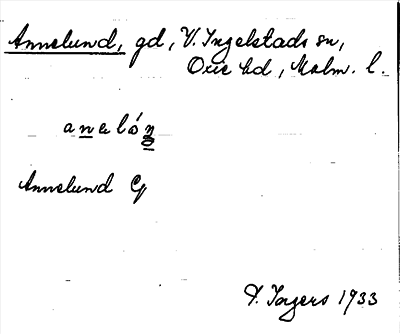 Annelund, gd, V. Ingelstads sn,
Oxie hd, Malm. l.
anelón
Annelund G
F. Ingers 1933